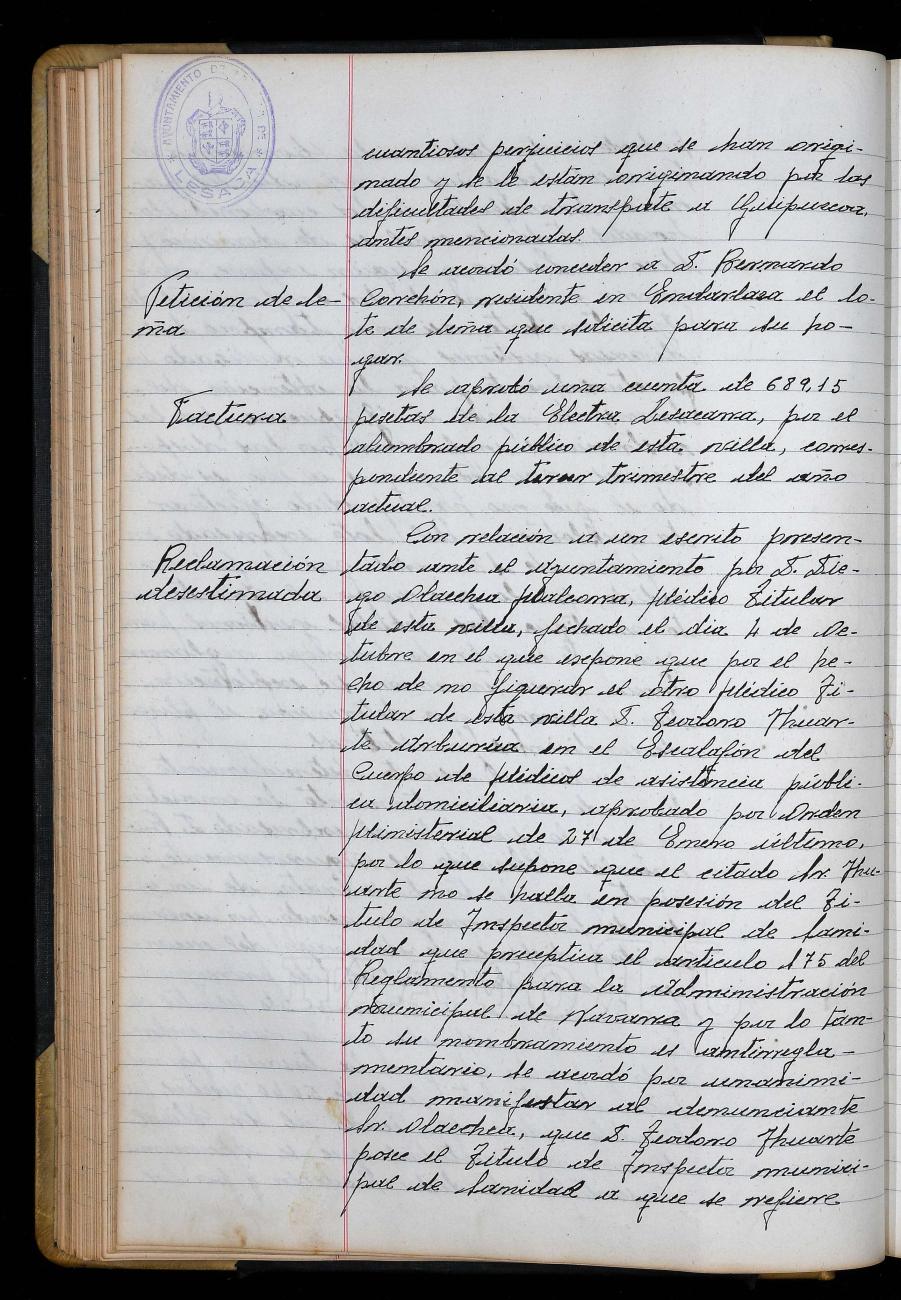 AYUNTAMIENTO DE
LESACA
cuantiosos perjuicios que se han origi-
nado y se le están originando por las
dificultades de transporte a Guipuzcoa,
antes mencionadas.
Se acordó conceder a D. Bernardo
Petición de le-
ña
Corchón, residente en Endarlasa el lo-
te de leña que solicita para su ho-
gar.
Se aprobó una cuenta de 689,15
Factura
pesetas de la Electra Lesacarra, por el
alumbrado público de esta villa, corres-
pondiente al tercer trimestre del año
actual.
Con relación a un escrito presen-
Reclamación
desestimada
tado ante el Ayuntamiento por D. Die-
go Olaechea Malcorra, Médico Titular
de esta villa, fechado el dia 4 de Oc-
tubre en el que expone que por el he-
cho de no figurar el otro Médico Ti-
tular de esta villa D. Teodoro Ihuar-
te Arburúa en el Escalafón del
Cuerpo de Médicos de asistencia públi-
ca domiciliaria, aprobado por Orden
Ministerial de 27 de Enero último,
por lo que supone que el citado Sr. Ihu-
arte no se halla en posesión del Ti-
tulo de Inspector municipal de Sani-
dad que preceptúa el articulo 175 del
Reglamento para la Administración
municipal de Navarra y por lo tan-
to su nombramiento es antirregla-
mentario, se acordó por unanimi-
dad manifestar al denunciante
Sr. Olaechea, que D. Teodoro Ihuarte
posee el Titulo de Inspector munici-
pal de Sanidad a que se refiere